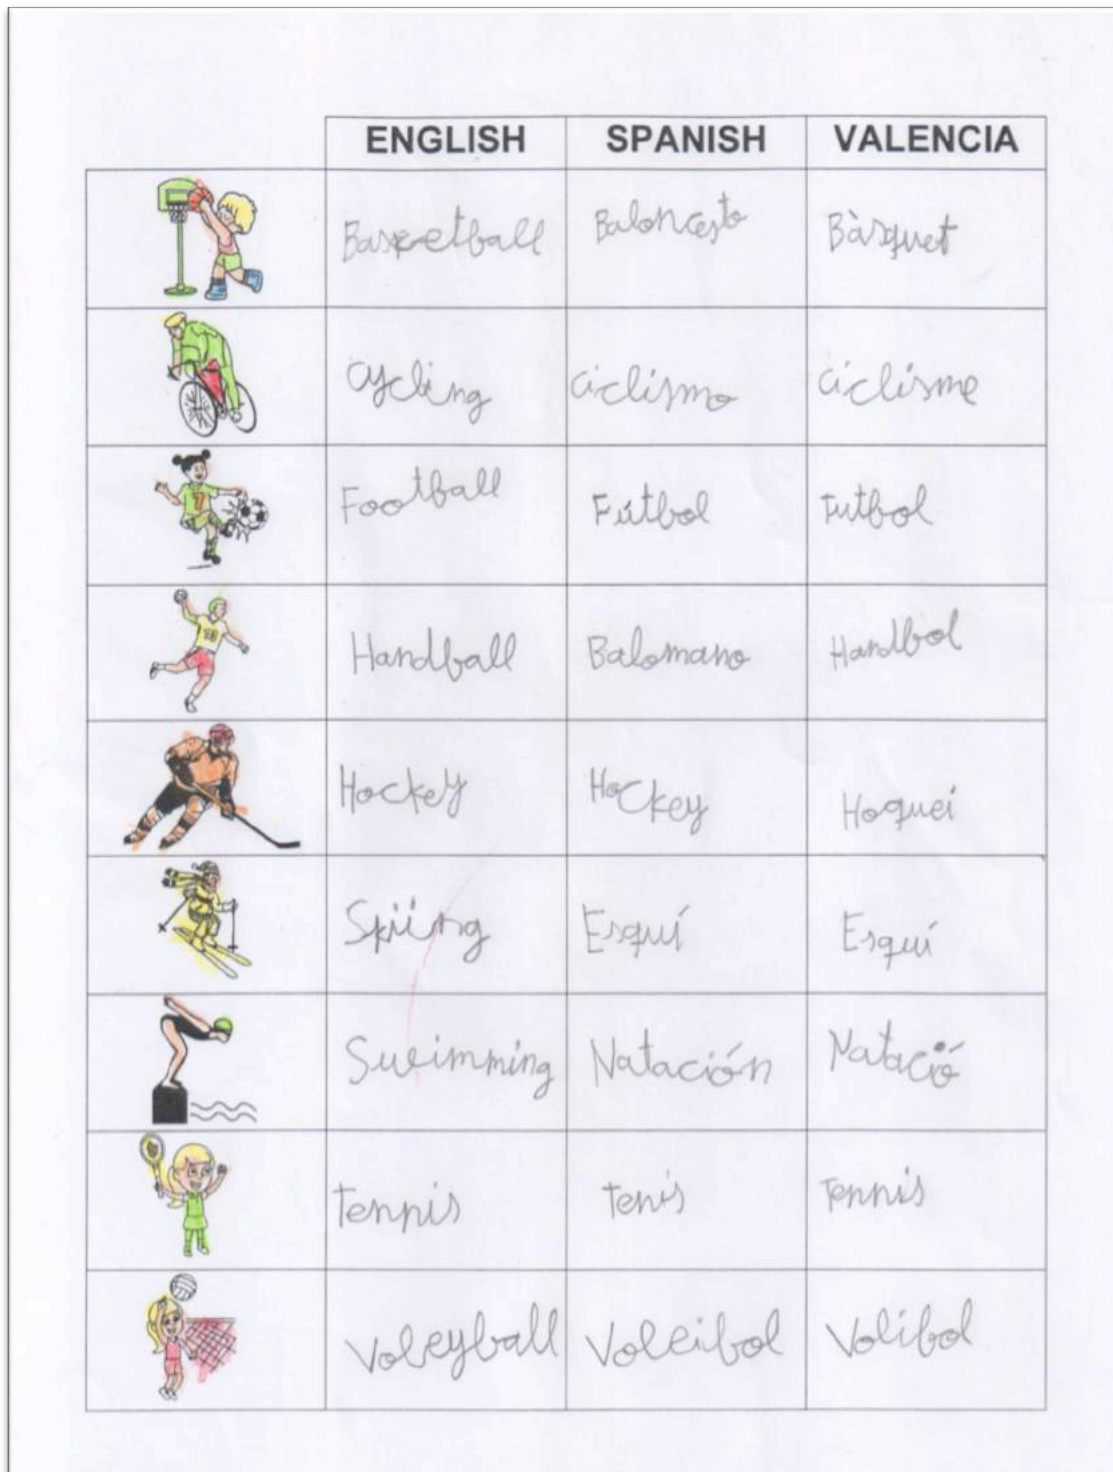 ENGLISH SPANISH VALENCIA
Basketball Baloncesto Bàsquet
Cycling Ciclismo Ciclisme
Football Fútbol Futbol
Handball Balomano Handbol
Hockey Hockey Hoquei
Skiing Esquí Esquí
Swimming Natación Natació
Tennis Tenis Tennis
Voleyball Voleibol Volibol